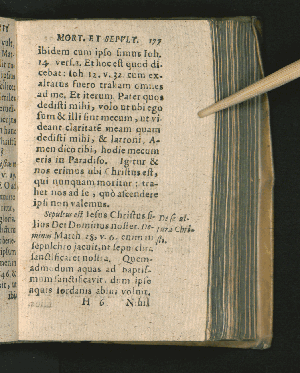 MORT. ET SEPULT. 177
ibidem cum ipso simus Ioh.
14. versa. Et hoc est quod di-
cebat: Ioh 12. v. 32. cum ex-
altatus fuero trakam omnes
ad me. Et iterum. Pater quos
dedisti mihi, volo ut ubi ego
sum & illi sint mecum, ut vi-
deant claritatẽ meam quam
dedisti mihi, & latroni, A-
men dico tibi, hodie mecum
eris in Paradiso. Igitur &
nos erimus ubi Christus est,
qui nunquam moritur: tra-
het nos ad se, quò ascendere
ipsi non valemus.
Sepultus est Iesus Christus fi- De se-
lius Dei Dominus noster.
Matth 28. v. 6. enim in
sepulchro jacuit, ut sepulchra
sanctificaret nostra. Quem-
admodum aquas ad baptis-
mum sanctificavit, dum ipse
aquis Iordanis ablui voluit.
H 6 Nihil